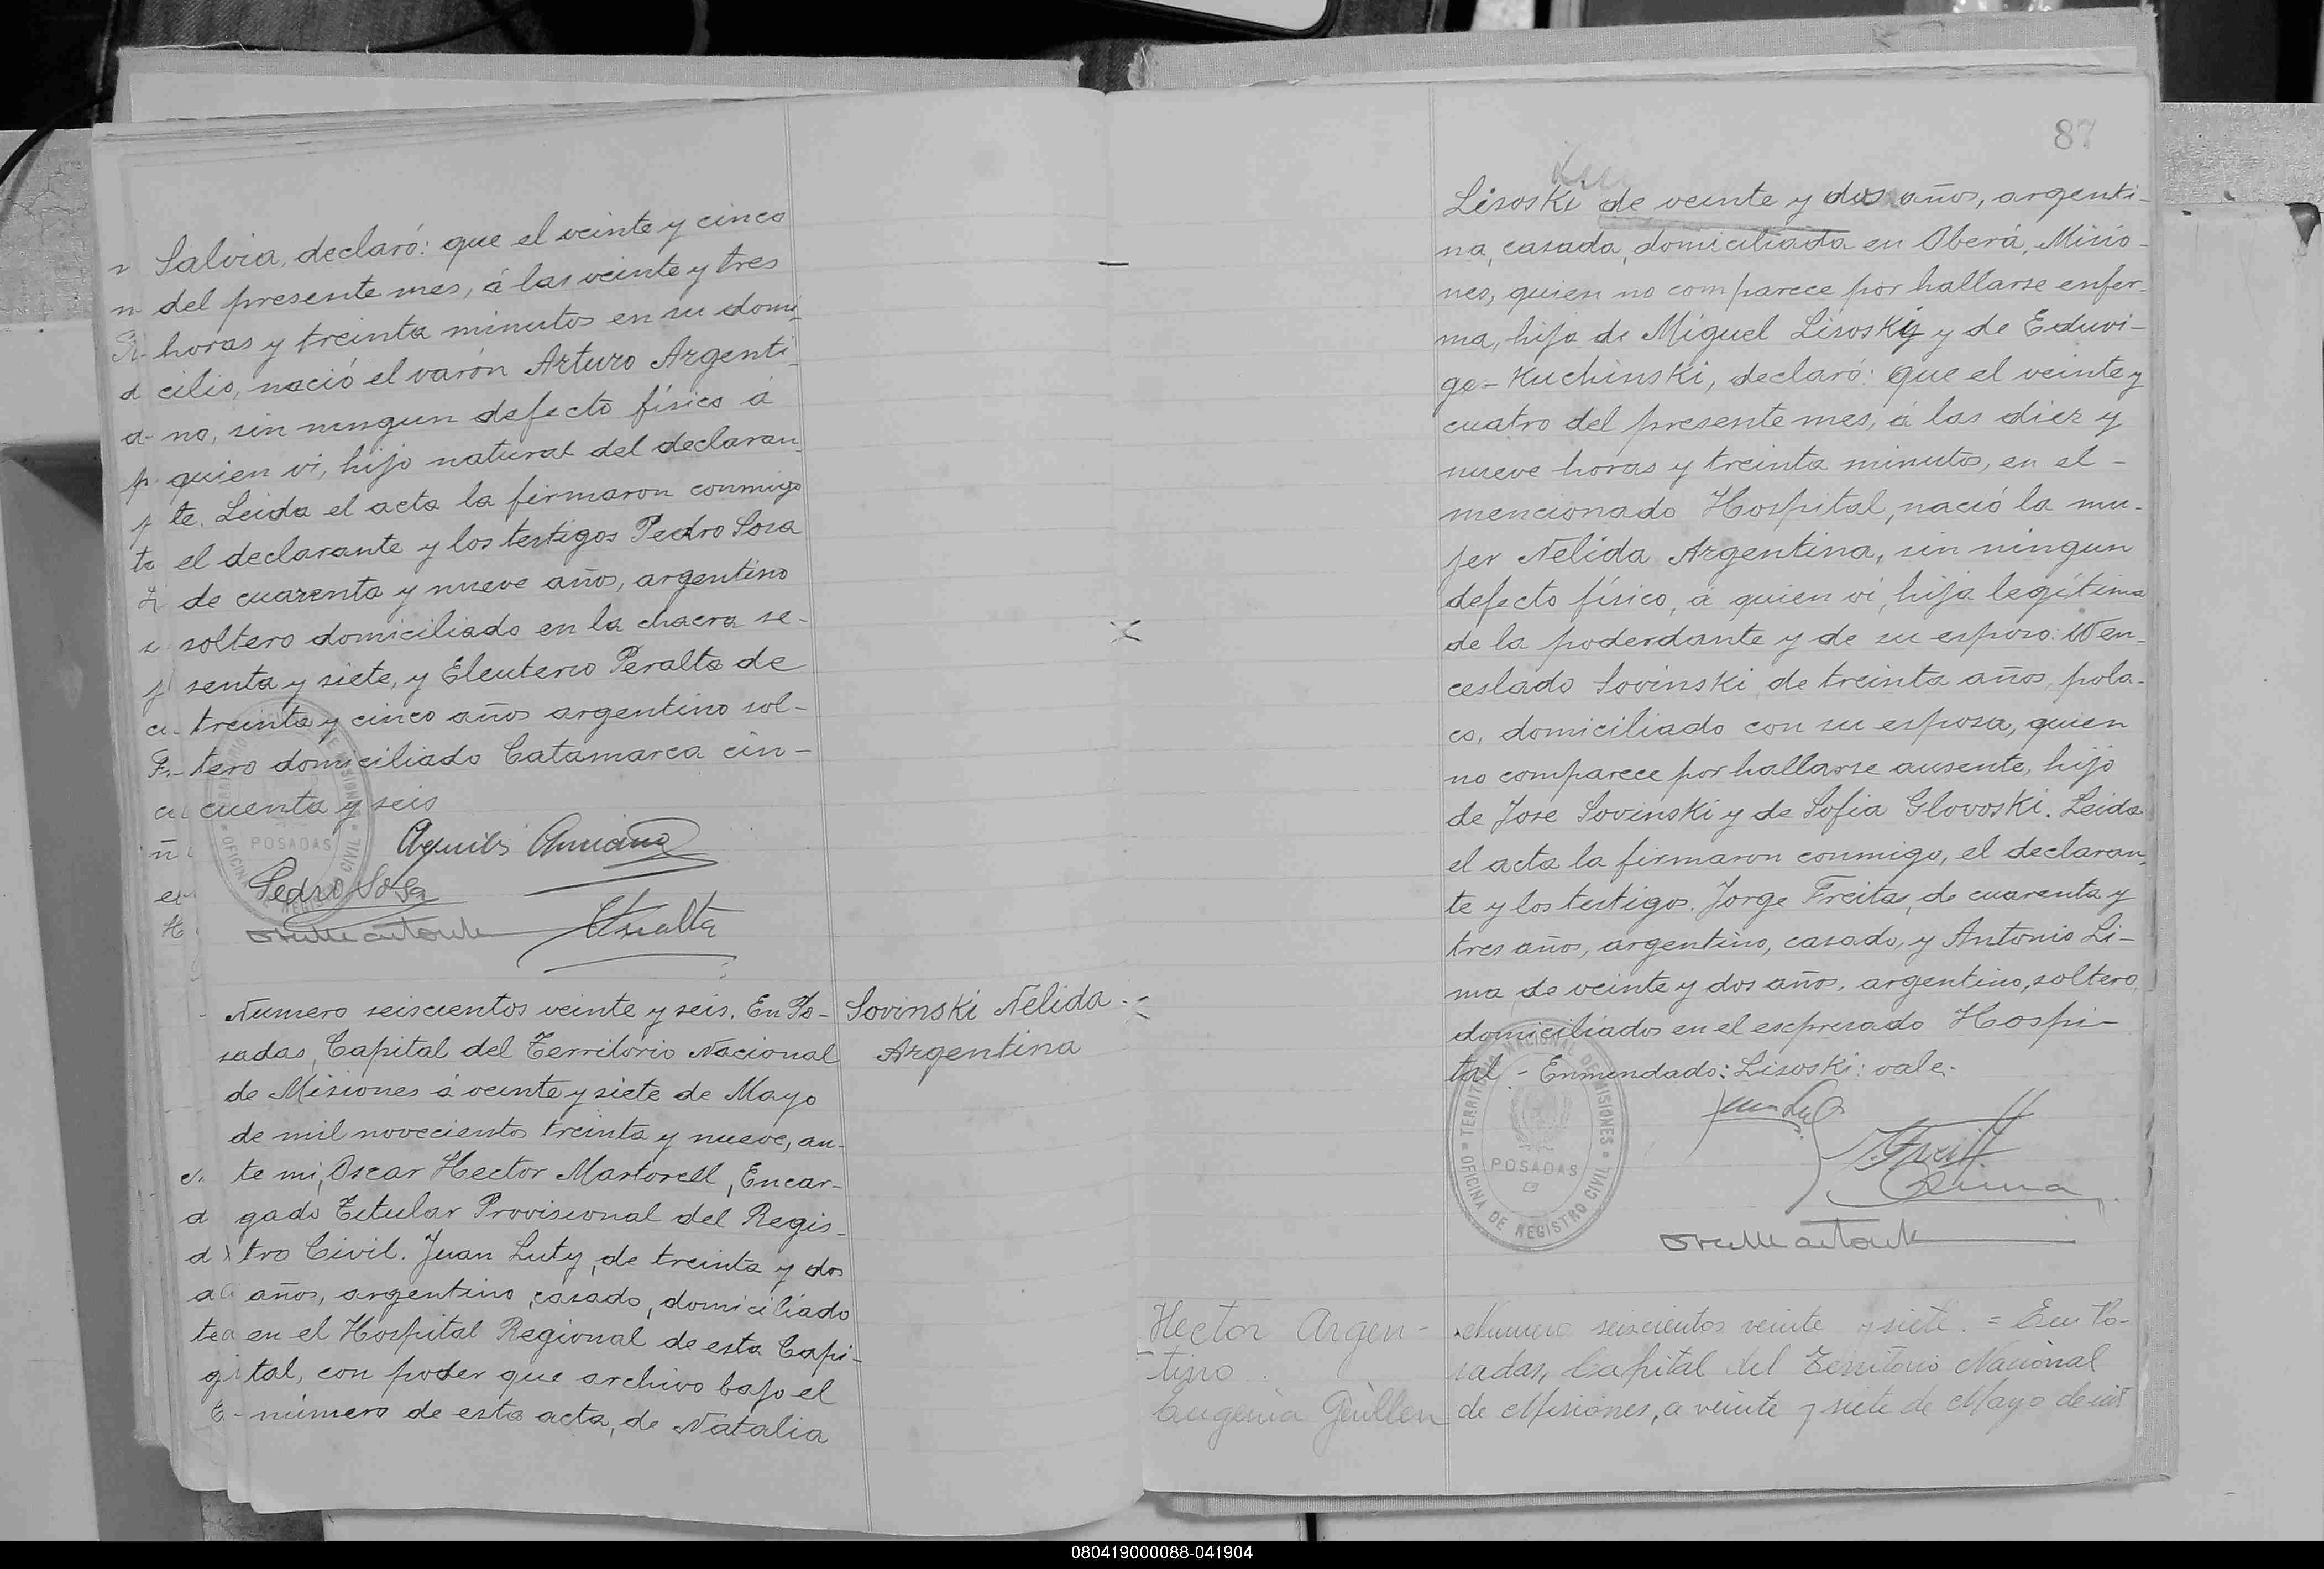 Salvia, declaró: que el veinte y cinco
del presente mes, á las veinte y tres
horas y treinta minutos en su domi-
cilio, nació el varón Arturo Argenti-
no, sin ningun defecto físico á
quien vi, hijo natural del declaran-
te. Leida el acta la firmaron conmigo
el declarante y los testigos Pedro Sosa
de cuarenta y nueve años, argentino
soltero domiciliado en la chacra se-
senta y siete, y Eleuterio Peralta de
treinta y cinco años argentino sol-
tero domiciliado Catamarca cin-
cuenta y seis
Pedro Sosa
POSADAS
OFICINA DE REGISTRO CIVIL
Numero seiscientos veinte y seis. En Po-
sadas, Capital del Territorio Nacional
de Misiones á veinte y siete de Mayo
de mil novecientos treinta y nueve, an-
te mi, Oscar Hector Martorell, Encar-
gado Titular Provisional del Regis-
tro Civil. Juan Luty, de treinta y dos
años, argentino, casado, domiciliado
en el Hospital Regional de esta Capi-
tal, con poder que archivo bajo el
número de esta acta, de Natalia
Sovinski Nelida
Argentina
87
Lisoski de veinte y dos años, argenti-
na, casada, domiciliada en Oberá, Misio-
nes, quien no comparece por hallarse enfer-
ma, hija de Miguel Lisosky y de Eduvi-
ge- Kuchinski, declaró: que el veinte y
cuatro del presente mes, á las diez y
nueve horas y treinta minutos, en el -
mencionado Hospital, nació la mu-
jer Nelida Argentina, sin ningun
defecto físico, á quien vi, hija legítima
de la poderdante y de su esposo: Wen-
ceslado Sovinski, de treinta años, pola-
co, domiciliado con su esposa, quien
no comparece por hallarse ausente, hijo
de Jose Sovinski y de Sofia Glovoski. Leida
el acta la firmaron conmigo, el declaran-
te y los testigos. Jorge Freitas, de cuarenta y
tres años, argentino, casado, y Antonio Li-
ma, de veinte y dos años, argentino, soltero,
domiciliados en el expresado Hospi-
tal.- Enmendado: Lisoski: vale.
TERRITORIO NACIONAL DE MISIONES
POSADAS
OFICINA DE REGISTRO CIVIL
Hector Argen-
tino
Eugenia Guillen
Numero seiscientos veinte y siete. = En Po-
sadas, Capital del Territorio Nacional
de Misiones, a veinte y siete de Mayo de mil
080419000088-041904